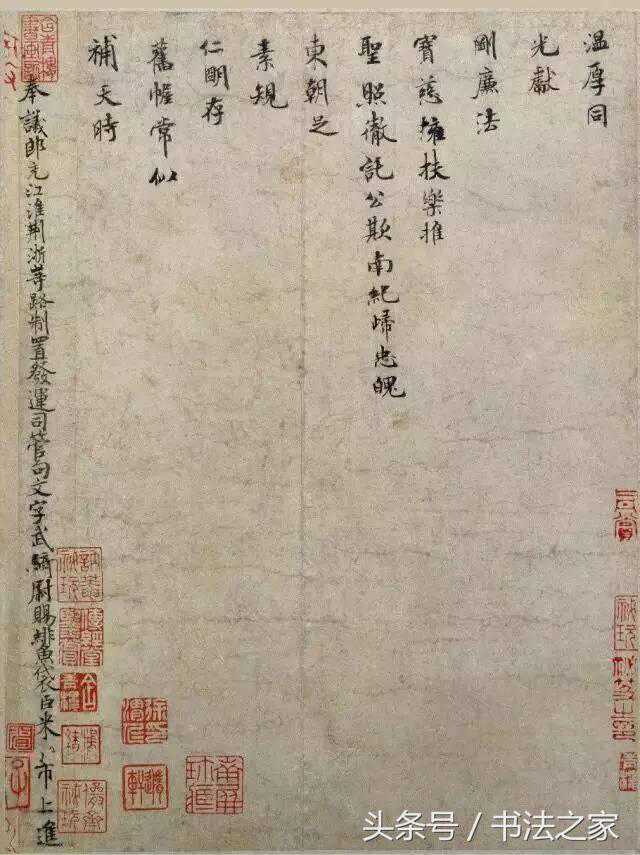 溫厚同
光獻
剛廉法
寶慈擁扶樂推
聖照徹託公欺南紀歸忠魄
東朝足
素規
仁明存
舊幄常似
補天時
奉議郎充江淮荊浙等路制置發運司管句文字武騎尉賜緋魚袋臣米芾上進
头条号 / 书法之家